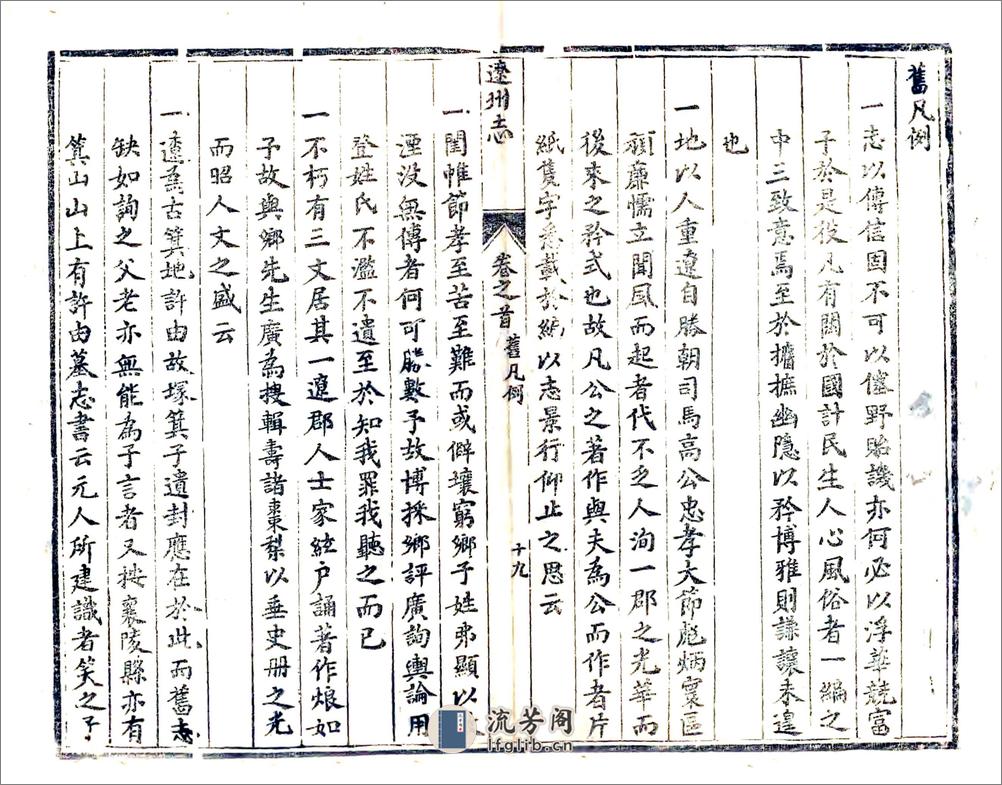 舊凡例
一志以傳信固不可以僿野貽譏亦何必以浮華競富
予於是役凡有關於國計民生人心風俗者一編之
中三致意焉至於攟摭幽隱以矜博雅則謙讓未遑
也
一地以人重遼自勝朝司馬高公忠孝大節彪炳寰區
頑廉懦立聞風而起者代不乏人洵一郡之光華而
後來之矜式也故凡公之著作與夫為公而作者片
紙隻字悉載於編以志景行仰止之思云
遼州志
卷之首 舊凡例
十九
一閨帷節孝至苦至難而或僻壤窮鄉子姓弗顯以
湮没無傳者何可勝數予故博採鄉評廣詢輿論用
登姓氏不濫不遺至於知我罪我聽之而已
一不朽有三文居其一遼郡人士家絃户誦著作烺如
予故與鄉先生廣為搜輯壽諸棗梨以垂史册之光
而昭人文之盛云
一遼為古箕地許由故塚箕子遺封應在於此而舊志
缺如詢之父老亦無能為予言者又按襄陵縣亦有
箕山山上有許由墓志書云元人所建識者笑之予
流芳阁
lfglib.cn